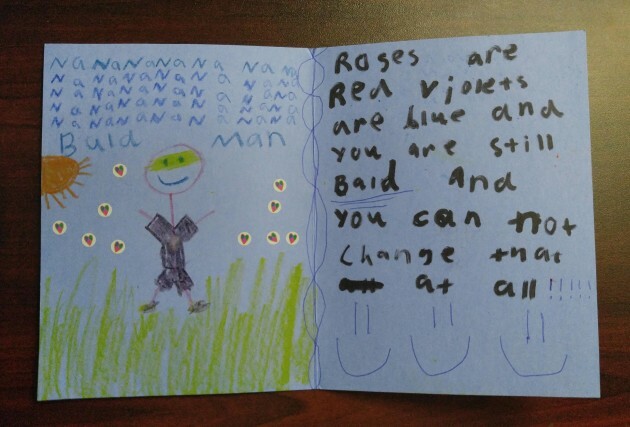 Na NaNaNaNa Na Nana
Na NaNaNaNa Na Nana
Na NaNaNaNa Na Nana
Na NaNaNaNa Na Nana
Na NaNaNaNa Na Nana
Bald Man
Roses are
Red violets
are blue and
you are still
Bald And
you can not
change that
at all !!!!!